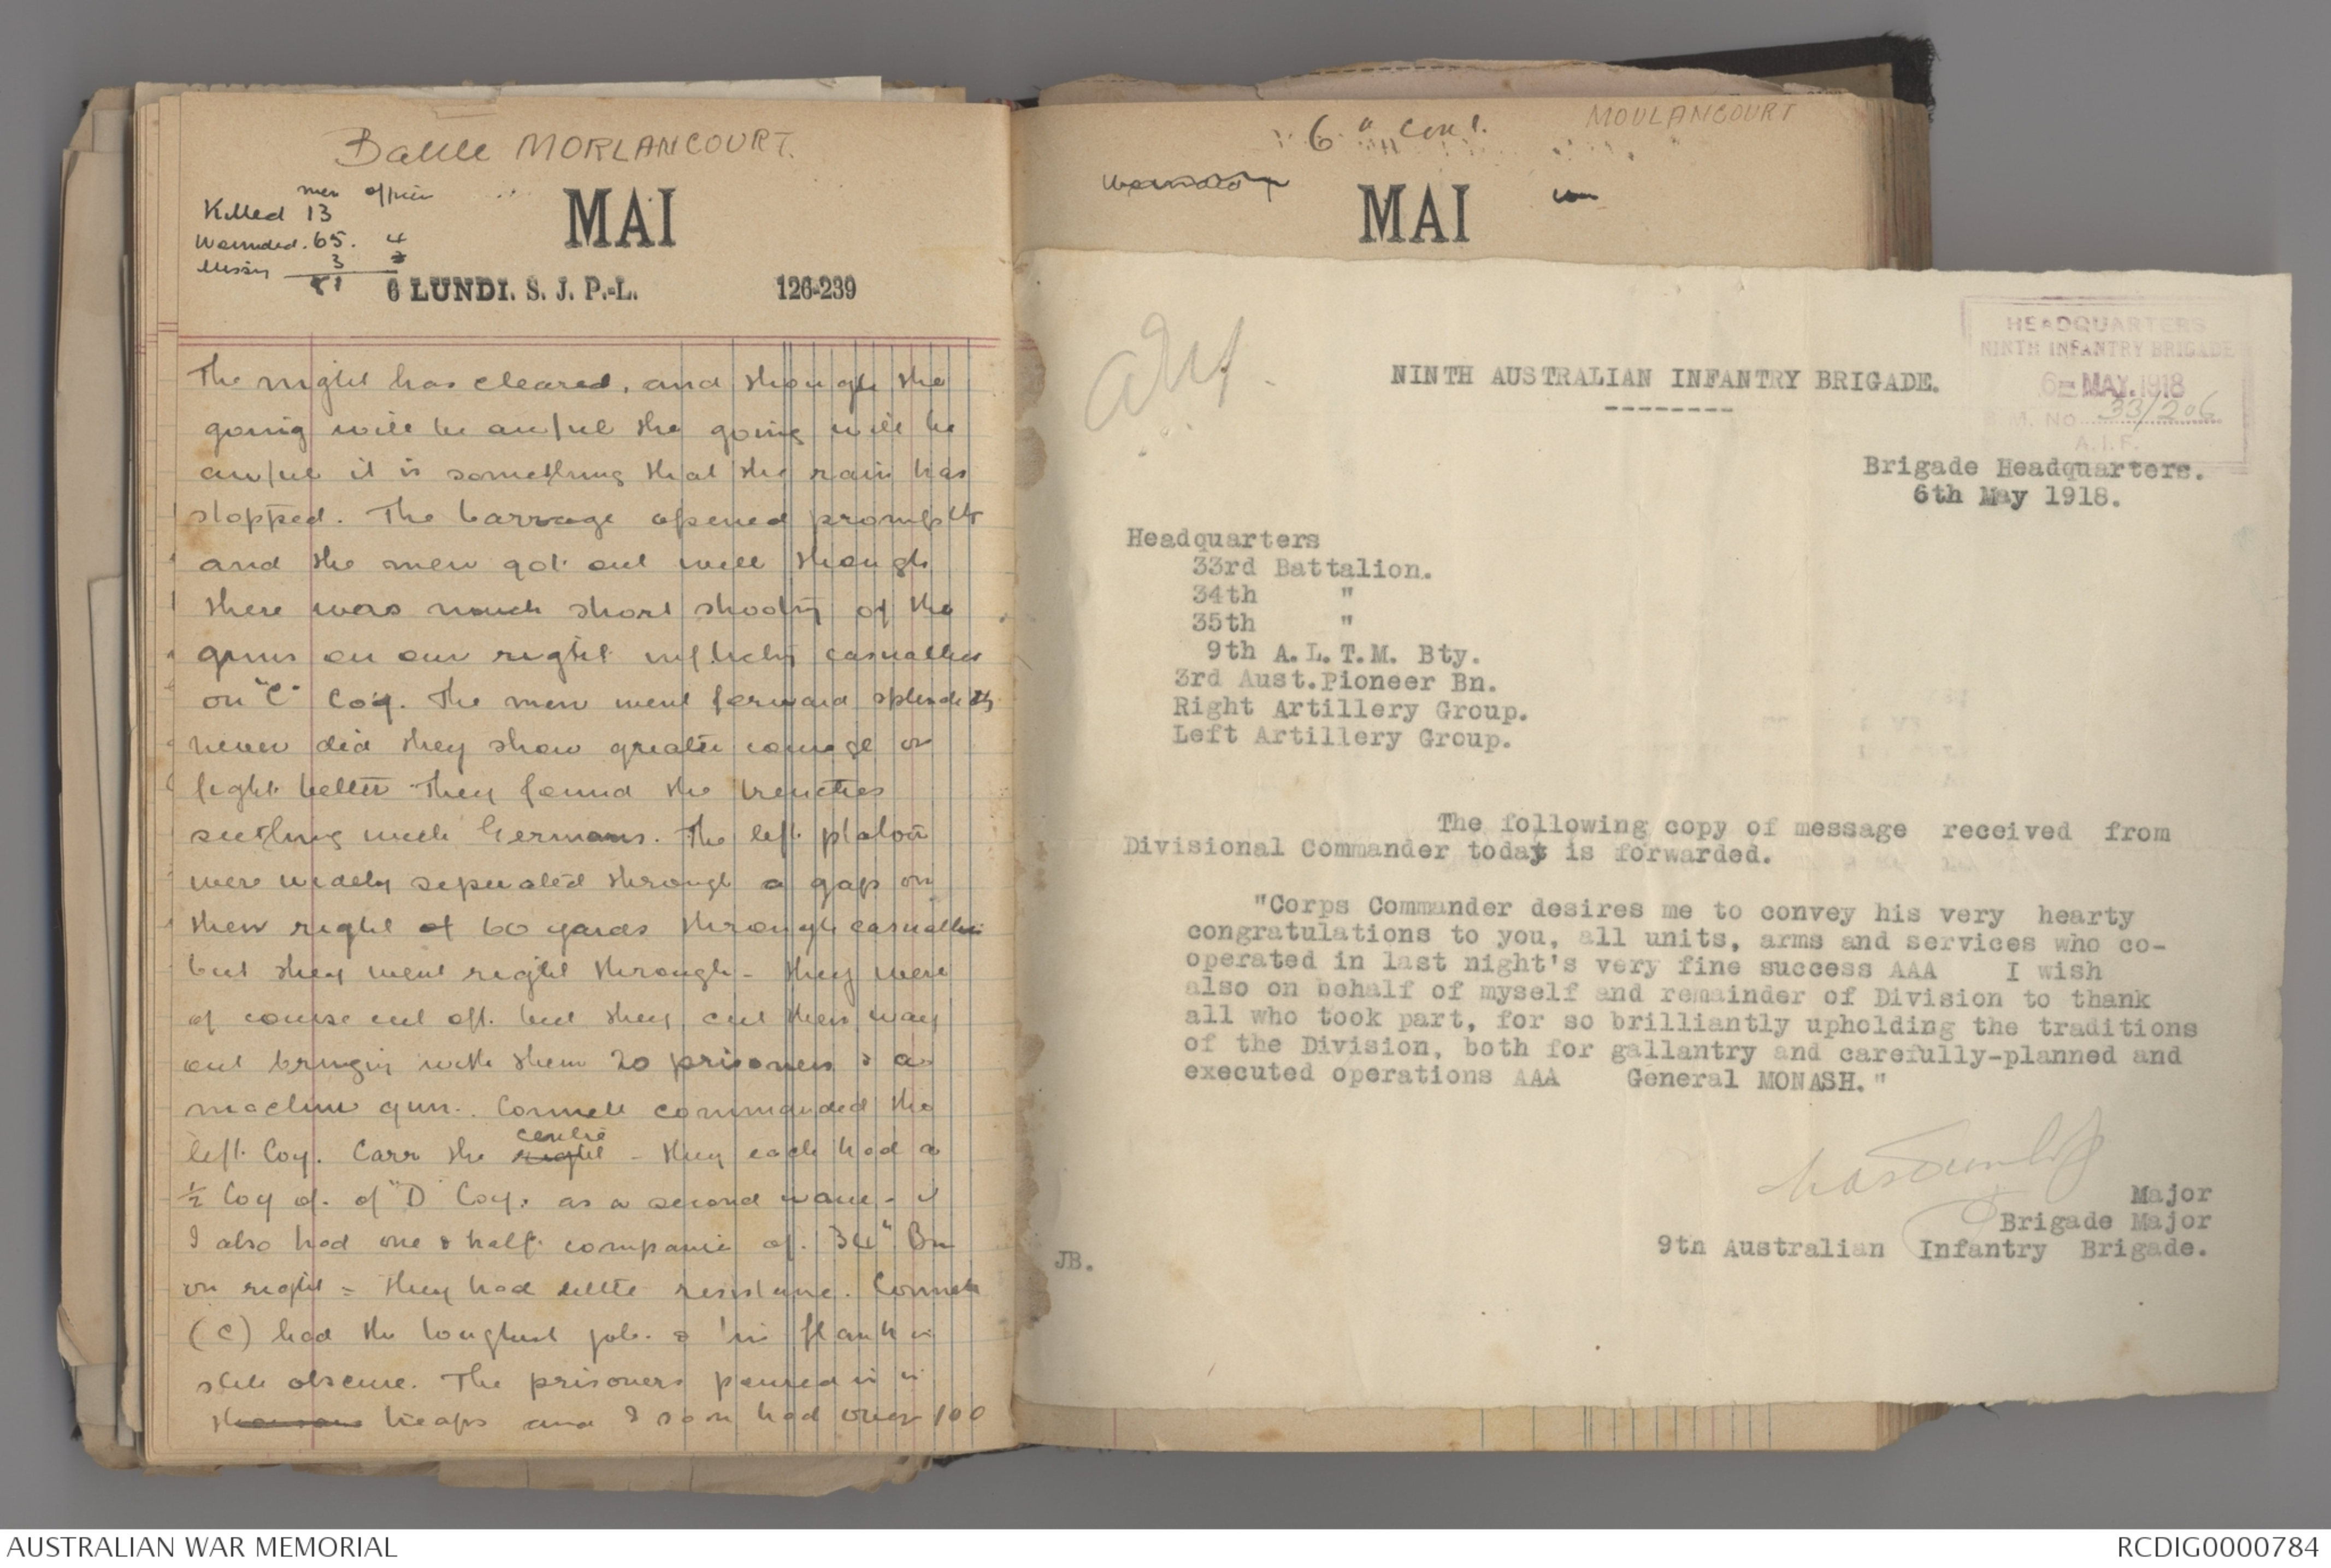 Battle MORLANCOURT.
men officers
Killed 13
Wounded. 65. 4
Missing 3
81
MAI
6 LUNDI. S. J. P.-L. 126-239
The night has cleared, and though the
going will be awful the going will be
awful it is something that the rain has
stopped. The barrage opened promptly
and the men got out well though
there was much short shooting of the
guns on our right inflicting casualties
on "C" Coy. The men went forward splendidly
never did they show greater courage or
fight better They found the trenches
seething with Germans. The left platoon
were widely seperated through a gap on
their right of 60 yards through casualties
but they went right through - they were
of course cut off. but they cut their way
out bringing with them 20 prisoners & a
machine gun. Connell commanded the
left Coy. Carr the right centre - they each had a
½ Coy of. of "D" Coy. as a second wave -
I also had one & half companies of. 34" Bn
on right = they had little resistance. Connell
(C) had the toughest job. & his flank is
still obscure. The prisoners poured in in
heaps and I soon had over 100
6" cont.
MOULANCOURT
MAI
HEADQUARTERS
NINTH INFANTRY BRIGADE
6 - MAY. 1918
B.M. No 33/206
A.I.F.
NINTH AUSTRALIAN INFANTRY BRIGADE.
--------
Brigade Headquarters.
6th May 1918.
Headquarters
33rd Battalion.
34th "
35th "
9th A.L.T.M. Bty.
3rd Aust.Pioneer Bn.
Right Artillery Group.
Left Artillery Group.
The following copy of message received from
Divisional Commander today is forwarded.
"Corps Commander desires me to convey his very hearty
congratulations to you, all units, arms and services who co-
operated in last night's very fine success AAA I wish
also on behalf of myself and remainder of Division to thank
all who took part, for so brilliantly upholding the traditions
of the Division, both for gallantry and carefully-planned and
executed operations AAA General MONASH."
Major
Brigade Major
9th Australian Infantry Brigade.
JB.
AUSTRALIAN WAR MEMORIAL
RCDIG0000784